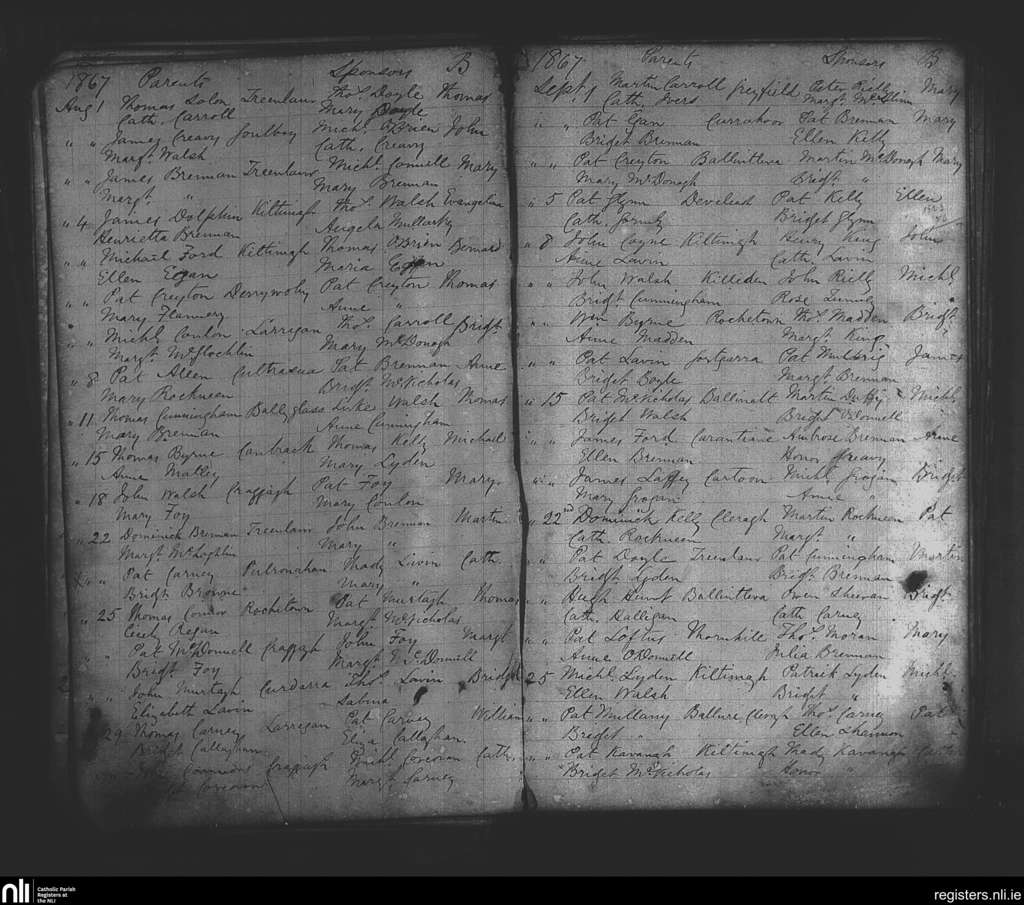 1867 Parents Sponsors B
Aug 1 Thomas Solon Treenlaur Thos. Doyle Thomas
Cath. Carroll Mary Doyle
" " James Creavy Michl. O'Brien John
Margt. Walsh Cath. Creavy
" " James Brennan Treenlaur Michl. Connell Mary
Margt. " Mary Brennan
" 4 James Dolphin Kiltimagh Thos. Walsh Evangeline
Henrietta Brennan Angela Mullarky
" " Michael Ford Kiltimagh Thomas O'Brien Bernard
Ellen Egan Maria Egan
" " Pat Creyton Derryvohy Pat Creyton Thomas
Mary Flannery Anne "
" " Michl. Conlon Larrigan Thos. Carroll Bridgt.
Margt. McGlochlin Mary McDonogh
" 8 Pat Allen Cultrasua Pat Brennan Anne
Mary Rockneen Bridgt. McNicholas
" 11 Thomas Cunningham Ballyglass Luke Walsh Thomas
Mary Brennan Anne Cunningham
" 15 Thomas Byrne Canbrack Thomas Kelly Michael
Anne Mary Lyden
" 18 John Walsh Craggagh Pat Foy Mary
Mary Foy Mary Conlon
" 22 Dominick Brennan Treenlaur John Brennan Martin
Margt. McLoghlin Mary "
" " Pat Carney Thady Lavin Cath.
Bridgt Browne Mary "
" 25 Thomas Connor Rochetown Pat Murtagh Thomas
Cicely Regan Margt. McNicholas
" " Pat McDonnell Craggagh John Foy Margt
Bridgt Foy Margt. McDonnell
" " John Murtagh Curdarra Thos. Lavin Bridgt
Elizabeth Lavin Sabina "
" 29 Thomas Carney Larrigan Pat Carney William
Bridget Callaghan Eliza Callaghan
Craggagh Michl. Corcoran Cath.
Corcoran Margt. Carney
1867 Parents Sponsors B
Sept. 1 Martin Carroll Greyfield Peter Rielly Mary
Cath. Ivers Margt. McGlinn
" " Pat Gan Carrahoor Pat Brennan Mary
Bridget Brennan Ellen Kelly
" " Pat Creyton Ballinteva Martin McDonogh Mary
Mary McDonogh Bridgt. "
" 5 Pat Glynn Devlead Pat Kelly Ellen
Cath. Gormly Bridget Glynn
" 8 John Coyne Kiltimagh Henry King John
Anne Lavin Cath. Lavin
" " John Walsh Killeden John Rielly Michl.
Bridgt Cunningham Rose Lunny
" " Wm Byrne Rochetown Thos. Madden Bridgt.
Anne Madden Margt. King
" " Pat Lavin Gortgarra Pat Mulbrig James
Bridget Boyle Margt. Brennan
" 15 Pat McNicholas Ballinalt Martin Duffy Michl.
Bridget Walsh Bridgt. O'Donnell
" " James Ford Carantiane Ambrose Brennan Anne
Ellen Brennan Honor Creavy
" " James Laffey Cartoon Michl. Grogan Bridget
Mary Grogan Anne "
" 22nd Dominick Kelly Cleragh Martin Rockneen Pat
Cath. Rockneen Margt. "
" " Pat Doyle Treenlaur Pat Cunningham Martin
Bridgt Lyden Bridgt. Brennan
" " Hugh Hunt Ballinteva Owen Sheeran Bridgt.
Cath. Halligan Cath Carney
" " Pat Loftus Thornhill Thos. Moran Mary
Anne O'Donnell Julia Brennan
25 Michl. Lyden Kiltimagh Patrick Lyden Michl.
Ellen Walsh Bridgt "
" " Pat Mullany Thos. Carney Pat
Bridget " Ellen Shannon
" " Pat Kavanagh Kiltimagh Thady Kavanagh
Bridget McNicholas Honor "
nli Catholic Parish
Registers at
the NLI
registers.nli.ie